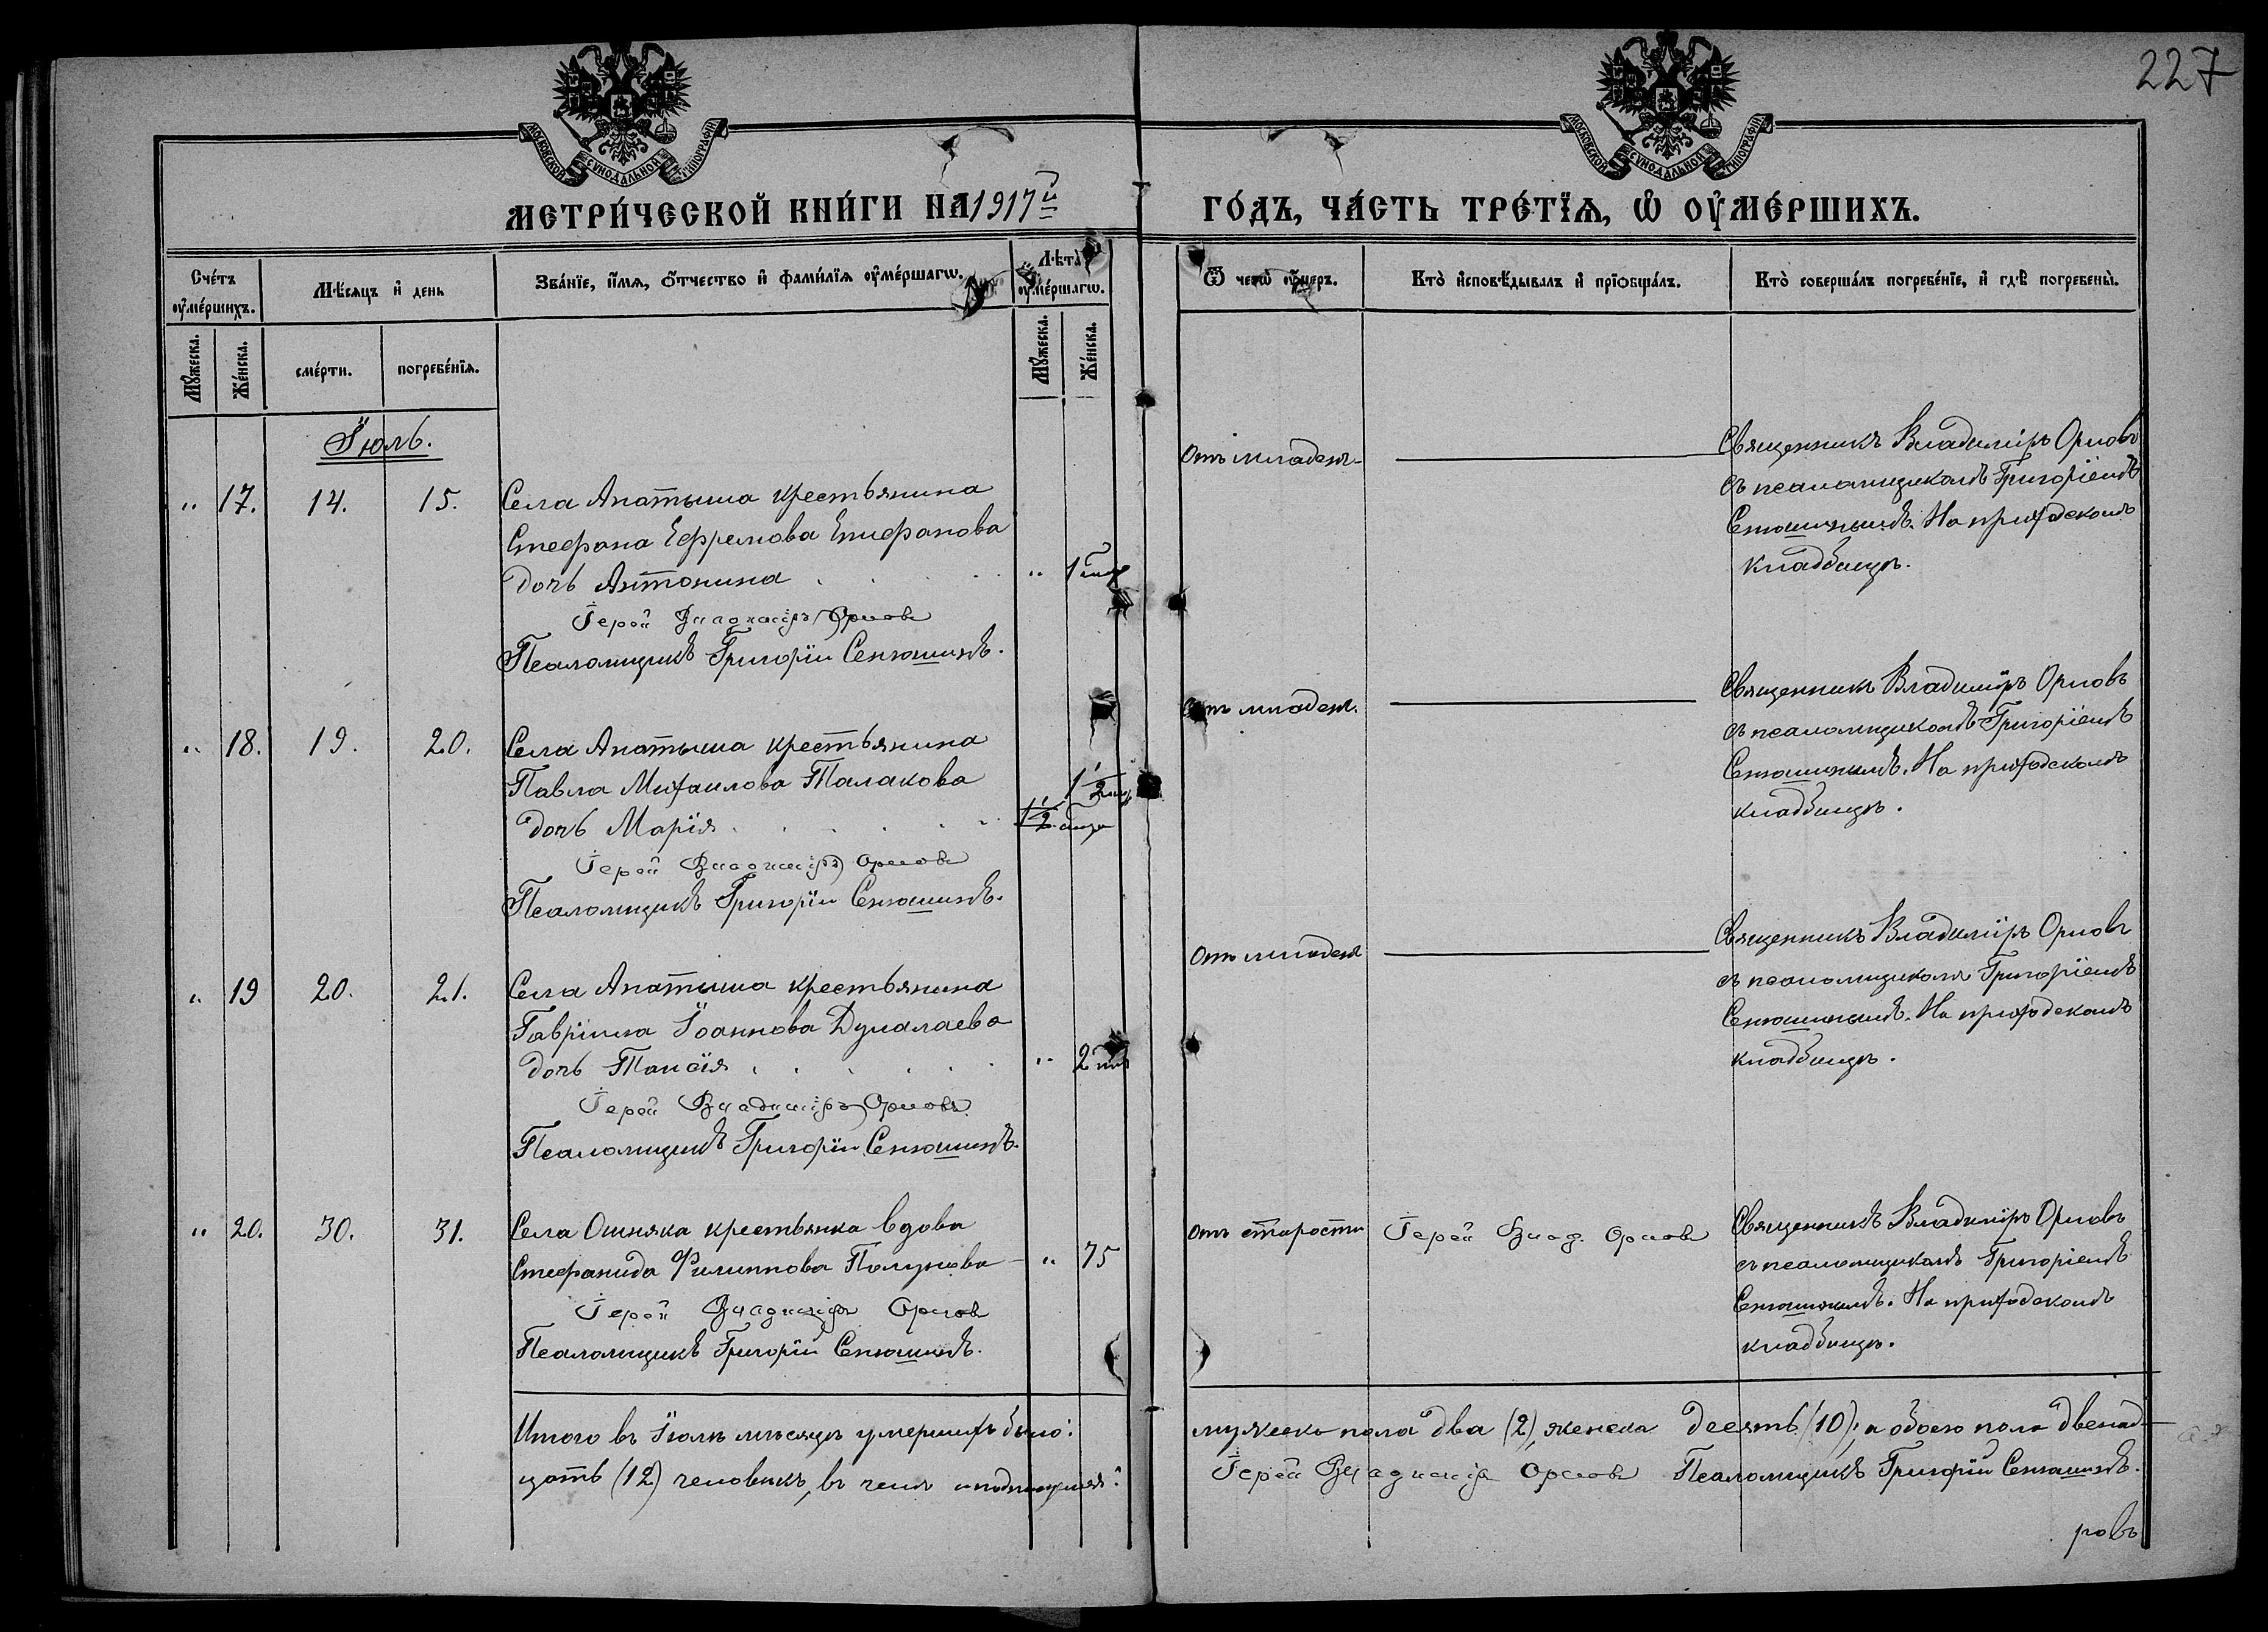 227
МОСКОВСКОЙ СУНОДАЛЬНОЙ ТИПОГРАФІИ
МОСКОВСКОЙ СУНОДАЛЬНОЙ ТИПОГРАФІИ
МЕТРИ́ЧЕСКОЙ КНИ́ГИ НА 1917й ГО́ДЪ, ЧА́СТЬ ТРЕ́ТЇѦ, Ѡ҆ ОУ҆МЕ́РШИХЪ.
Сче́тъ оу҆ме́ршихъ.
Мѣ́сяцъ и҆ день
Зва́нїе, и҆́мѧ, ѻ҆́тчество и҆ фами́лїѧ оу҆ме́ршагѡ.
Лѣ́та оу҆ме́ршагѡ.
Ѿ чегѡ̀ оу҆́меръ.
Кто̀ и҆сповѣ́дывалъ и҆ прїѻбща́лъ.
Кто̀ соверша́лъ погребе́нїе, и҆ гдѣ̀ погребены̀.
Мꙋ́жеска.
Же́нска.
сме́рти.
погребе́нїѧ.
Мꙋ́жеска.
Же́нска.
Іюль.
" 17. 14. 15.
Села Апатыша крестьянина
Стефана Ефремова Епифанова
дочь Антонина " 1
Іерей Владиміръ Орловъ
Псаломщикъ Григорій Сенюшинъ.
Отъ младен.
Священникъ Владиміръ Орловъ
съ псаломщикомъ Григоріемъ
Сенюшинымъ. На приходскомъ
кладбищѣ.
" 18. 19. 20.
Села Апатыша крестьянина
Павла Михаилова Талакова
дочь Марія 1/2
Іерей Владиміръ Орловъ
Псаломщикъ Григорій Сенюшинъ.
Отъ младен.
Священникъ Владиміръ Орловъ
съ псаломщикомъ Григоріемъ
Сенюшинымъ. На приходскомъ
кладбищѣ.
" 19 20. 21.
Села Апатыша крестьянина
Гавріила Іоаннова Думалаева
дочь Таисія " 2
Іерей Владиміръ Орловъ
Псаломщикъ Григорій Сенюшинъ.
Отъ младен
Священникъ Владиміръ Орловъ
съ псаломщикомъ Григоріемъ
Сенюшинымъ. На приходскомъ
кладбищѣ.
" 20. 30. 31.
Села Ошняка крестьянка вдова
Стефанида Филиппова Полунова " 75
Іерей Владиміръ Орловъ
Псаломщикъ Григорій Сенюшинъ.
Отъ старости
Іерей Влад. Орловъ
Священникъ Владиміръ Орловъ
съ псаломщикомъ Григоріемъ
Сенюшинымъ. На приходскомъ
кладбищѣ.
Итого въ Іюлѣ мѣсяцѣ умершихъ было: мужеска пола два (2), женска десять (10); а обоего пола двенад-
цать (12) человѣкъ, въ чемъ и подписуемся: Іерей Владиміръ Орловъ Псаломщикъ Григорій Сенюшинъ.
ровъ